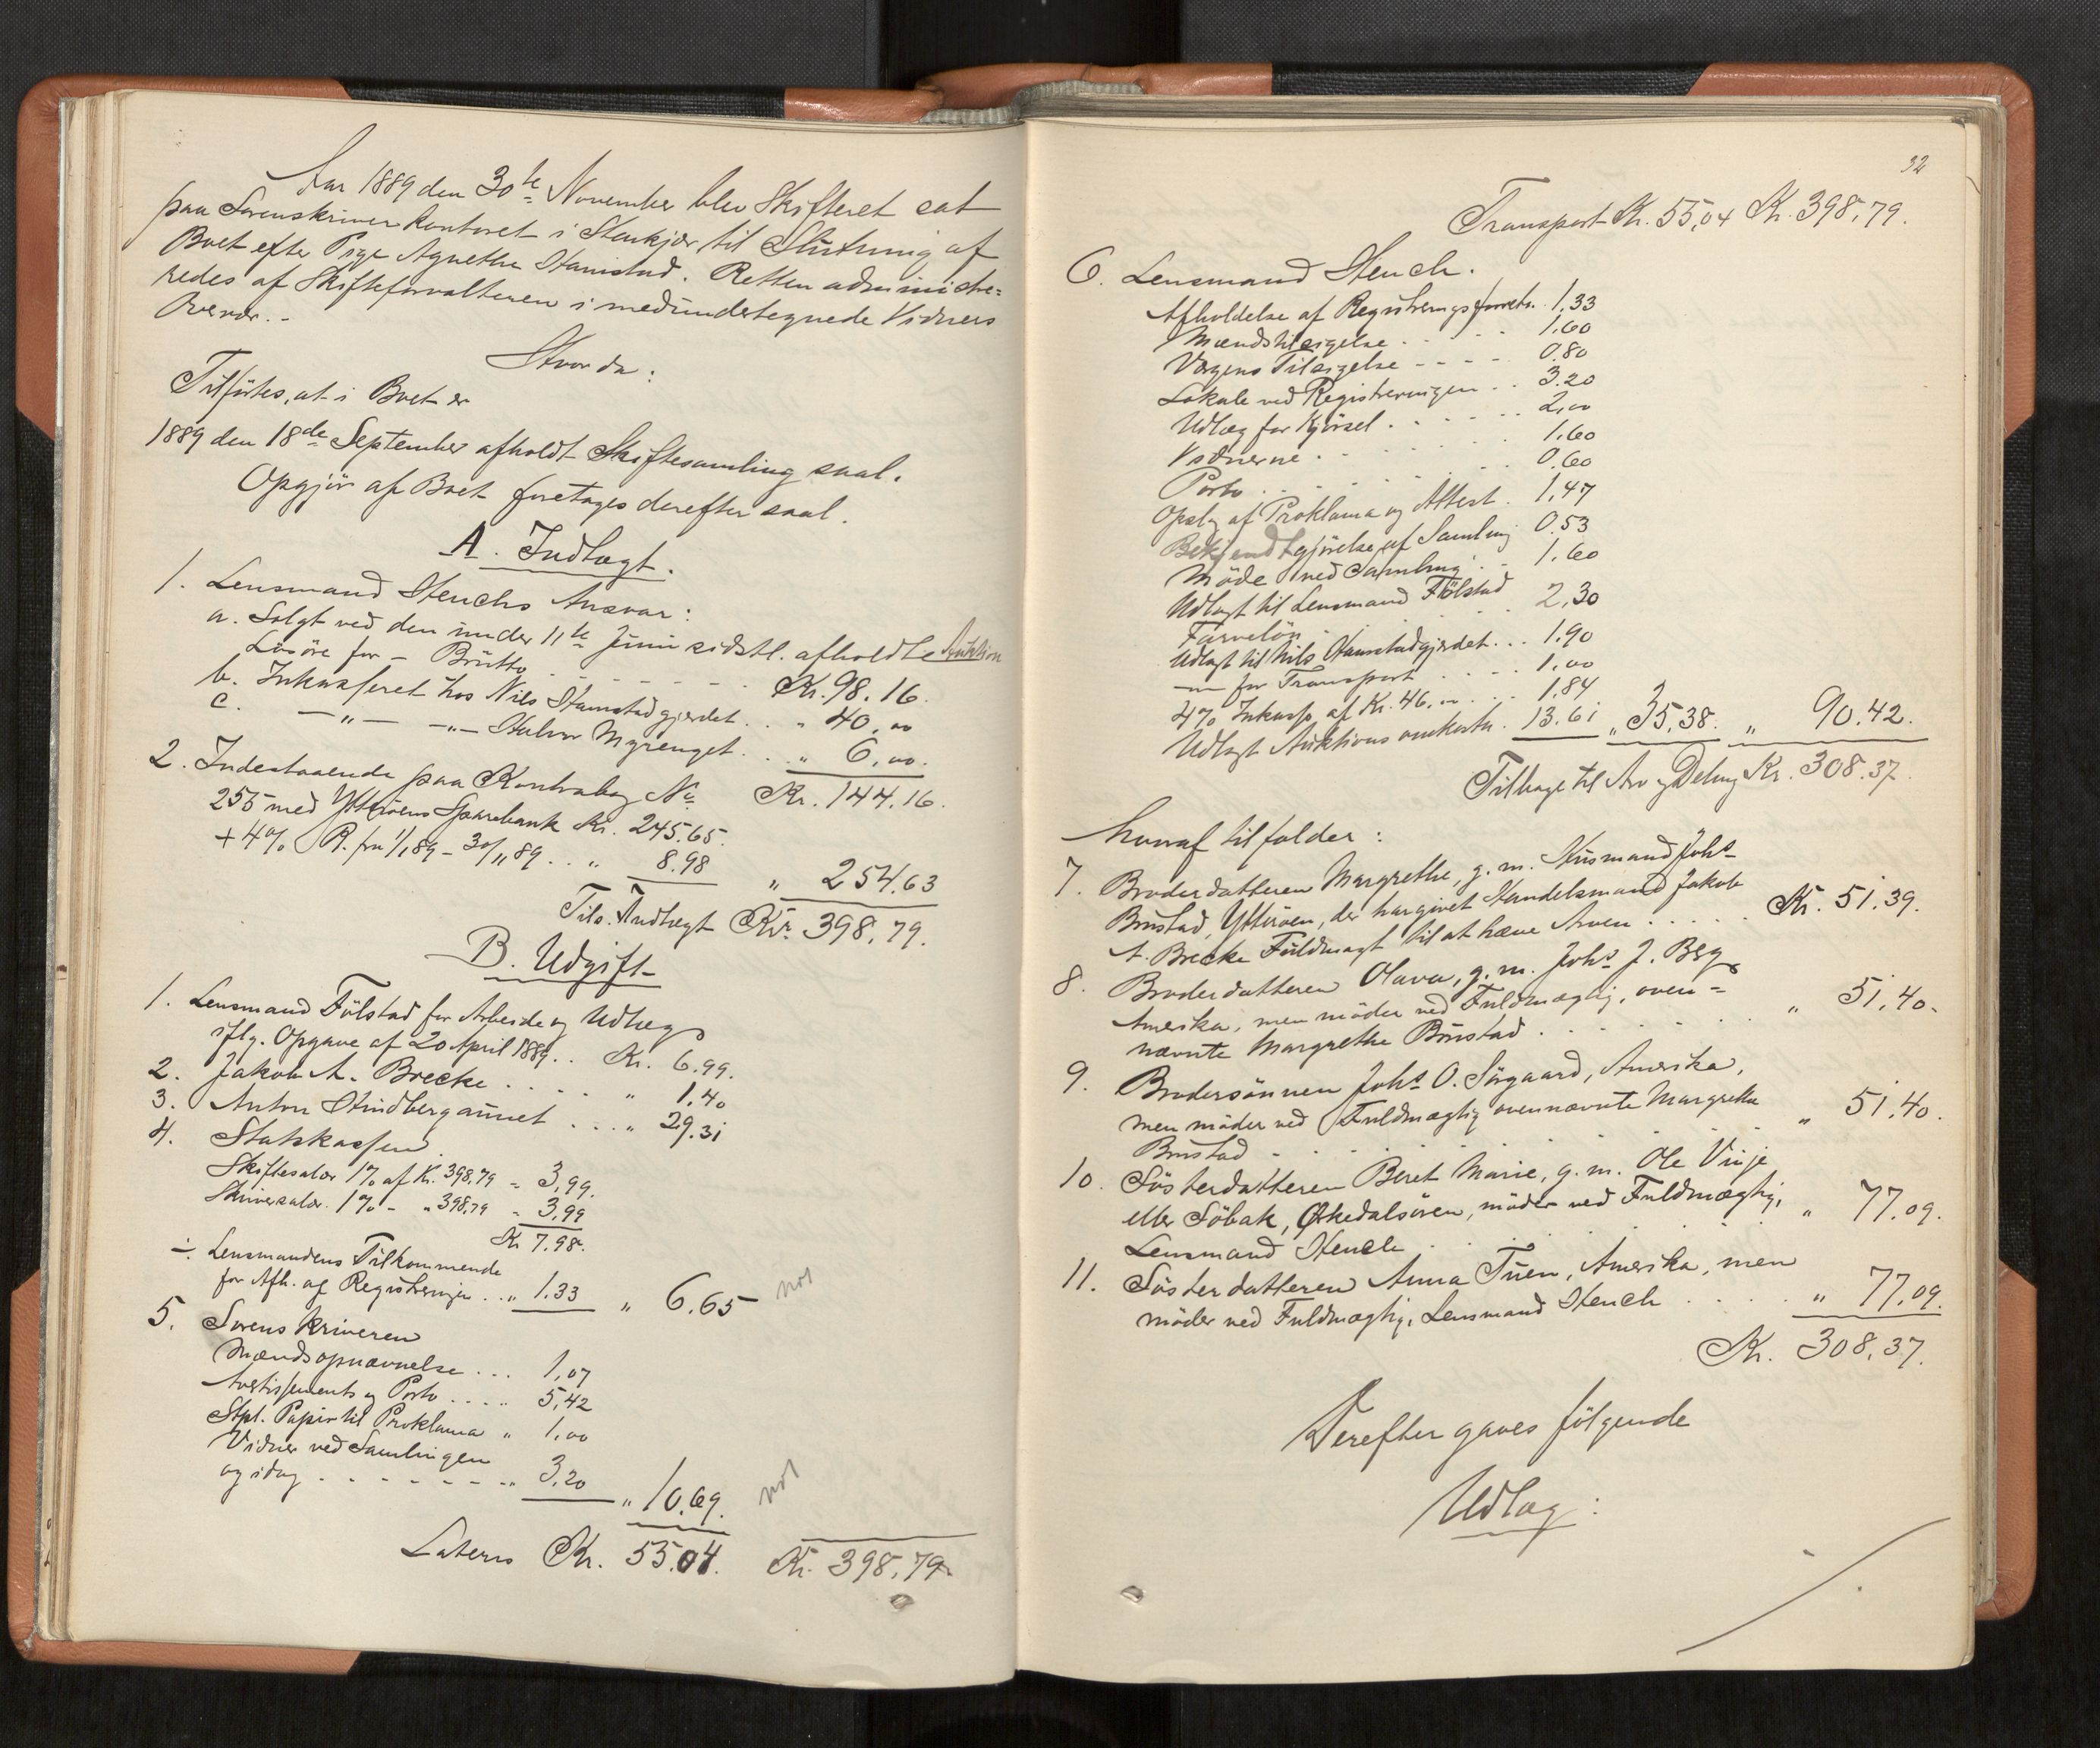 Aar 1889 den 30te November blev Skifteret sat
paa Sorenskriver kontoret i Stenkjær til Slutning af
Boet efter Pige Agnethe Hamstad. Retten administre=
redes af Skifteforvalteren i medundertegnede Vidners
Overvær. -
Hvorda:
Tilførtes, at i Boet er
1889 den 18de September afholdt Skiftesamling saal.
Opgjør af Boet foretages derefter saal.
A. Indtægt.
1. Lensmand Stenchs Ansvar:
a. Solgt ved den under 11te Juni sidstl. afholdte Auktion
Løsøre for - Brutto - - - - - - Kr. 98.16.
b. Inkasseret hos Nils Hamstadgjerdet . . „ 40,00
c. -„- -„- Halvor Myrenget . . „ 6,00.
Kr. 144.16.
2. Indestaaende paa Kontrabog No
255 med Ytterøens Sparebank Kr. 245.65.
+ 4% R. fra 1/1 89 - 30/11 89 . . „ 8.98
„ 254.63
Tils. Indtægt Kr. 398.79.
B. Udgift
1. Lensmand Følstad for Arbeide og Udlæg
iflg. Opgave af 20 April 1889 . . Kr. 6.99.
2. Jakob A. Brecke . . . . „ 1.40
3. Anton Hindbergaunet . . . „ 29.31
4. Statskassen
Skiftesalær 1% af Kr. 398.79 = 3,99.
Skriversalær. 1% - „ 398,79 = 3.99
Kr 7.98.
÷ Lensmandens Tilkommende
for Afh. af Registreringen . . „ 1.33 „ 6.65 not
5. Sorenskriveren
Mændsopnævnelse . . . 1,07
Avertissements og Porto . . . . 5,42
Stpl. Papir til Proklama „ 1,00
Vidner ved Samlingen
og idag . . - - - - - „ 3.20 „ 10.69. not
Lateris Kr. 55.04. Kr. 398,79.
32
Transport Kr. 55,04 Kr. 398,79.
6. Lensmand Stench.
Afholdelse af Registreringsforretn. 1.33
Mændstilsigelse . . - - 1.60
Værgens Tilsigelse - - - - 0.80
Lokale ved Registreringen . . 3.20
Udlæg for Kjørsel . . . . . 2,00
Vidnerne . . . . . 1.60
Porto . . . . . . 0.60
Opslag af Proklama og Attest . 1.47
Bekjendtgjørelse af Samling 0.53
Møde ved Samling . - 1.60
Udlagt til Lensmand Følstad
Farveløn . . . . . 2,30
Udlagt til Nils Hamstadgjerdet . . . 1.90
-„- for Transport . . . . 1,00
4% Inkasso af Kr. 46,00 . . . 1.84
Udlagt Auktions omkostn. 13.61 „ 35,38. „ 90.42.
Tilbage til Arv og Deling Kr. 308.37.
hvoraf tilfalder:
7. Broderdatteren Margrethe, g. m. Husmand Johs
Brustad, Ytterøen, der har givet Handelsmand Jakob
A. Brecke Fuldmagt til at hæve Arven . . . . . Kr. 51.39.
8. Broderdatteren Olava, g. m. Johs J. Berg
Amerika, men møder ved Fuldmægtig, oven=
nævnte Margrethe Brustad . . . . . . . „ 51.40.
9. Brodersønnen Johs O. Søgaard, Amerika,
men møder ved Fuldmægtig ovennævnte Margrethe
Brustad - . . . . . . . . „ 51.40.
10. Søsterdatteren Beret Marie, g. m. Ole Vinje
eller Søbak, Ørkedalsøren, møder ved Fuldmægtig,
Lensmand Stench . . . . . . . „ 77.09.
11. Søsterdatteren Anna Tuen, Amerika, men
møder ved Fuldmægtig, Lensmand Stench . . . . „ 77.09.
Kr. 308.37.
Derefter gaves følgende
Udlæg: